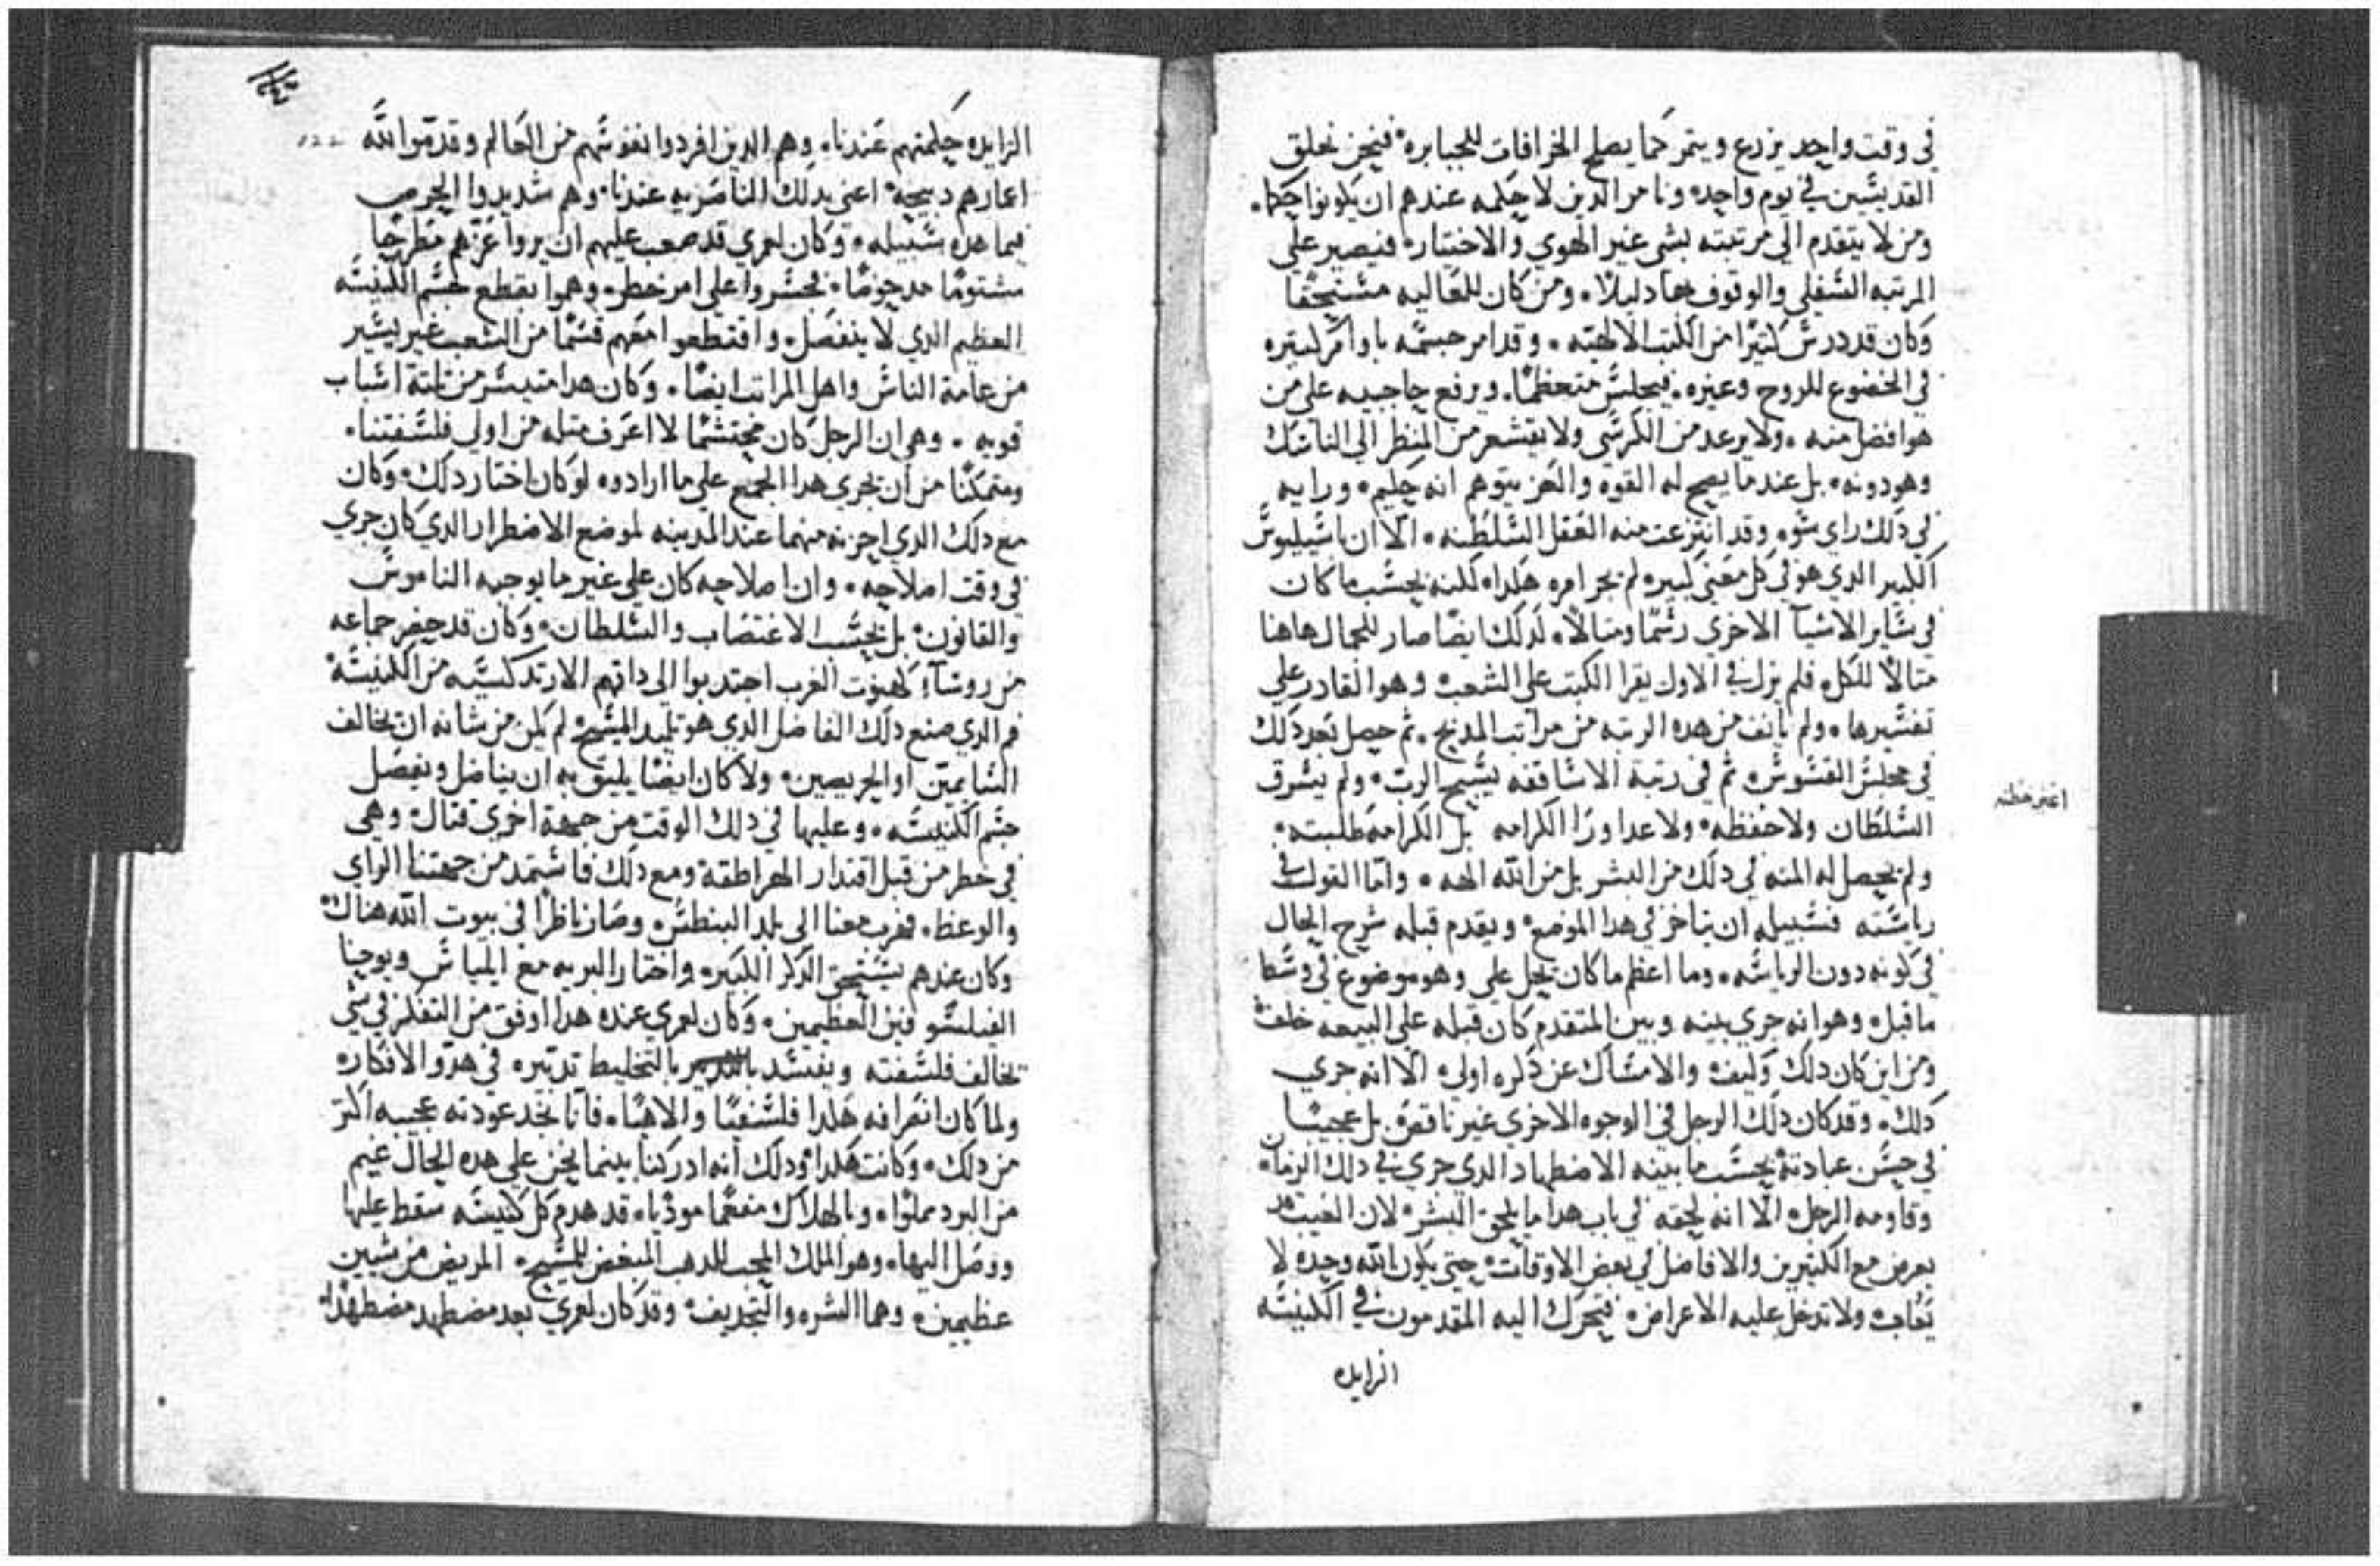 في وقت واحد يزرع ويتمر كما يصلح الخرافات للجبابره فنحن نخلق
القديسين في يوم واحد ونامر الدين لا حكمه عندهم ان يكونوا حكما
ومن لا يتقدم الى مرتبته بشي غير الهوي والاختيار فنصير علي
المرتبه السفلي والوقوف بها دليلا ومن كان للعاليه مستحقا
وكان قد درس كثيرا من الكتب الالهيه وقد امر جسمه باوامر كثيره
في الخضوع للروح وغيره فيجلس متعظما ويرفع حاجبيه علي من
هو افضل منه ولا يرعد من الكرسي ولا يقشعر من المنظر الي الناسك
وهو دونه بل عندما يصح له القوه والعز يتوهم انه حكيم ورايه
في دلك راي سو وقد انتزعت منه العقل السلطنه الا ان باسيليوس
الكبير الدي هو في كل معني كبير لم يجر امره هكدا لكنه بحسب ما كان
في ساير الاشيا الاخري رسما ومثالا لدلك ايضا صار للجمال هاهنا
مثالا للكل فلم يزل في الاول يقرا الكتب علي الشعب وهو القادر علي
تفسيرها ولم يانف من هده الرتبه من مراتب المدبح ثم حصل بعد دلك
في مجلس القسوس ثم في رتبة الاساقفه يسبح الرب ولم يسرق
السلطان ولا خطفه ولا عدا ورا الكرامه بل الكرامه طلبته
ولم يحصل له المنه في دلك من البشر بل من الله الهه واما القول في
رياسته فسبيله ان يتاخر في هدا الموضع ويقدم قبله شرح الحال
في كونه دون الرياسه وما اعظم ما كان يحل علي وهو موضوع في وسط
ما قبل وهو انه جري بينه وبين المتقدم كان قبله علي البيعه خلف
ومن اين كان دلك وكيف والامساك عن دكره اولي الا انه جري
دلك وقد كان دلك الرجل في الوجوه الاخري غير ناقص بل عجيبا
في حسن عبادته بحسب ما بينه الاضطهاد الدي جري في دلك الزمان
وقاومه الرجل الا انه لحقه في باب هدا ما يلحق البشر لان العيب قد
يعرض مع الكثيرين والافاضل في بعض الاوقات حتي يكون الله وحده لا
يعاب ولا تدخل عليه الاعراض فتحرك اليه المقدمون في الكنيسه
الزايده
الزايده حكمتهم عندنا وهم الدين افردوا نفوسهم من العالم وقدموا لله
اعمارهم دبيحه اعني بدلك الناصريه عندنا وهم شديدوا الحرص
فيما هده سبيله وكان لعمري قد صعب عليهم ان يروا عزهم مطرحا
مشتوما مدحوضا فجسروا علي امر خطر وهموا بقطع جسم الكنيسه
العظيم الدي لا ينفصل واقتطعوا معهم قسما من الشعب غير يسير
من عامة الناس واهل المراتب ايضا وكان هدا متيسر من تلتة اسباب
قويه وهي ان الرجل كان محتشما لا اعرف مثله من اولي فلسفتنا
ومتمكنا من ان يجري هدا الجمع علي ما ارادوه لو كان اختار دلك وكان
مع دلك الدي احزنه متهما عند المدينه لموضع الاضطرار الدي كان جري
في وقت اصلاحه وان اصلاحه كان علي غير ما يوجبه الناموس
والقانون بل بحسب الاغتصاب والسلطان وكان قد حضر جماعه
من روسآء كهنوت الغرب اجتدبوا الي داتهم الارتدكسيه من الكنيسه
فم الدي صنع دلك الفاضل الدي هو تلميد المسيح لم يكن من شانه ان يخالف
السايميين او الحريصين ولا كان ايضا يليق به ان يناضل ويفصل
جسم الكنيسه وعليها في دلك الوقت من جهة اخري قتال وهي
في خطر من قبل اقتدار الهراطقه ومع دلك فاستمد من جهتنا الراي
والوعظ فهرب معنا الي بلد البنطس وصار ناظرا في بيوت الله هناك
وكان عندهم يستحق الدكر الكبير واختار البريه مع ايلياس ويوحنا
الفيلسوفين العظيمين وكان لعمري عنده هدا اوفق من التفكر في شي
يخالف فلسفته ويفسد بالتخليط تدبيره في هدو الافكار
ولما كان انصرافه هكدا فلسفيا والاهيا فانا نجد عودته عجيبه اكتر
من دلك وكانت هكدا ودلك انه ادركنا بينما نحن علي هده الحال غيم
من البرد مملوا وبالهلاك مفعما موديا قد هدم كل كنيسه سقط عليها
ووصل اليها وهو الملك المحب للدهب المبغض للمسيح المريض من شيين
عظيمين وهما الشره والتجديف وقد كان لعمري بعد مضطهد مضطهدا